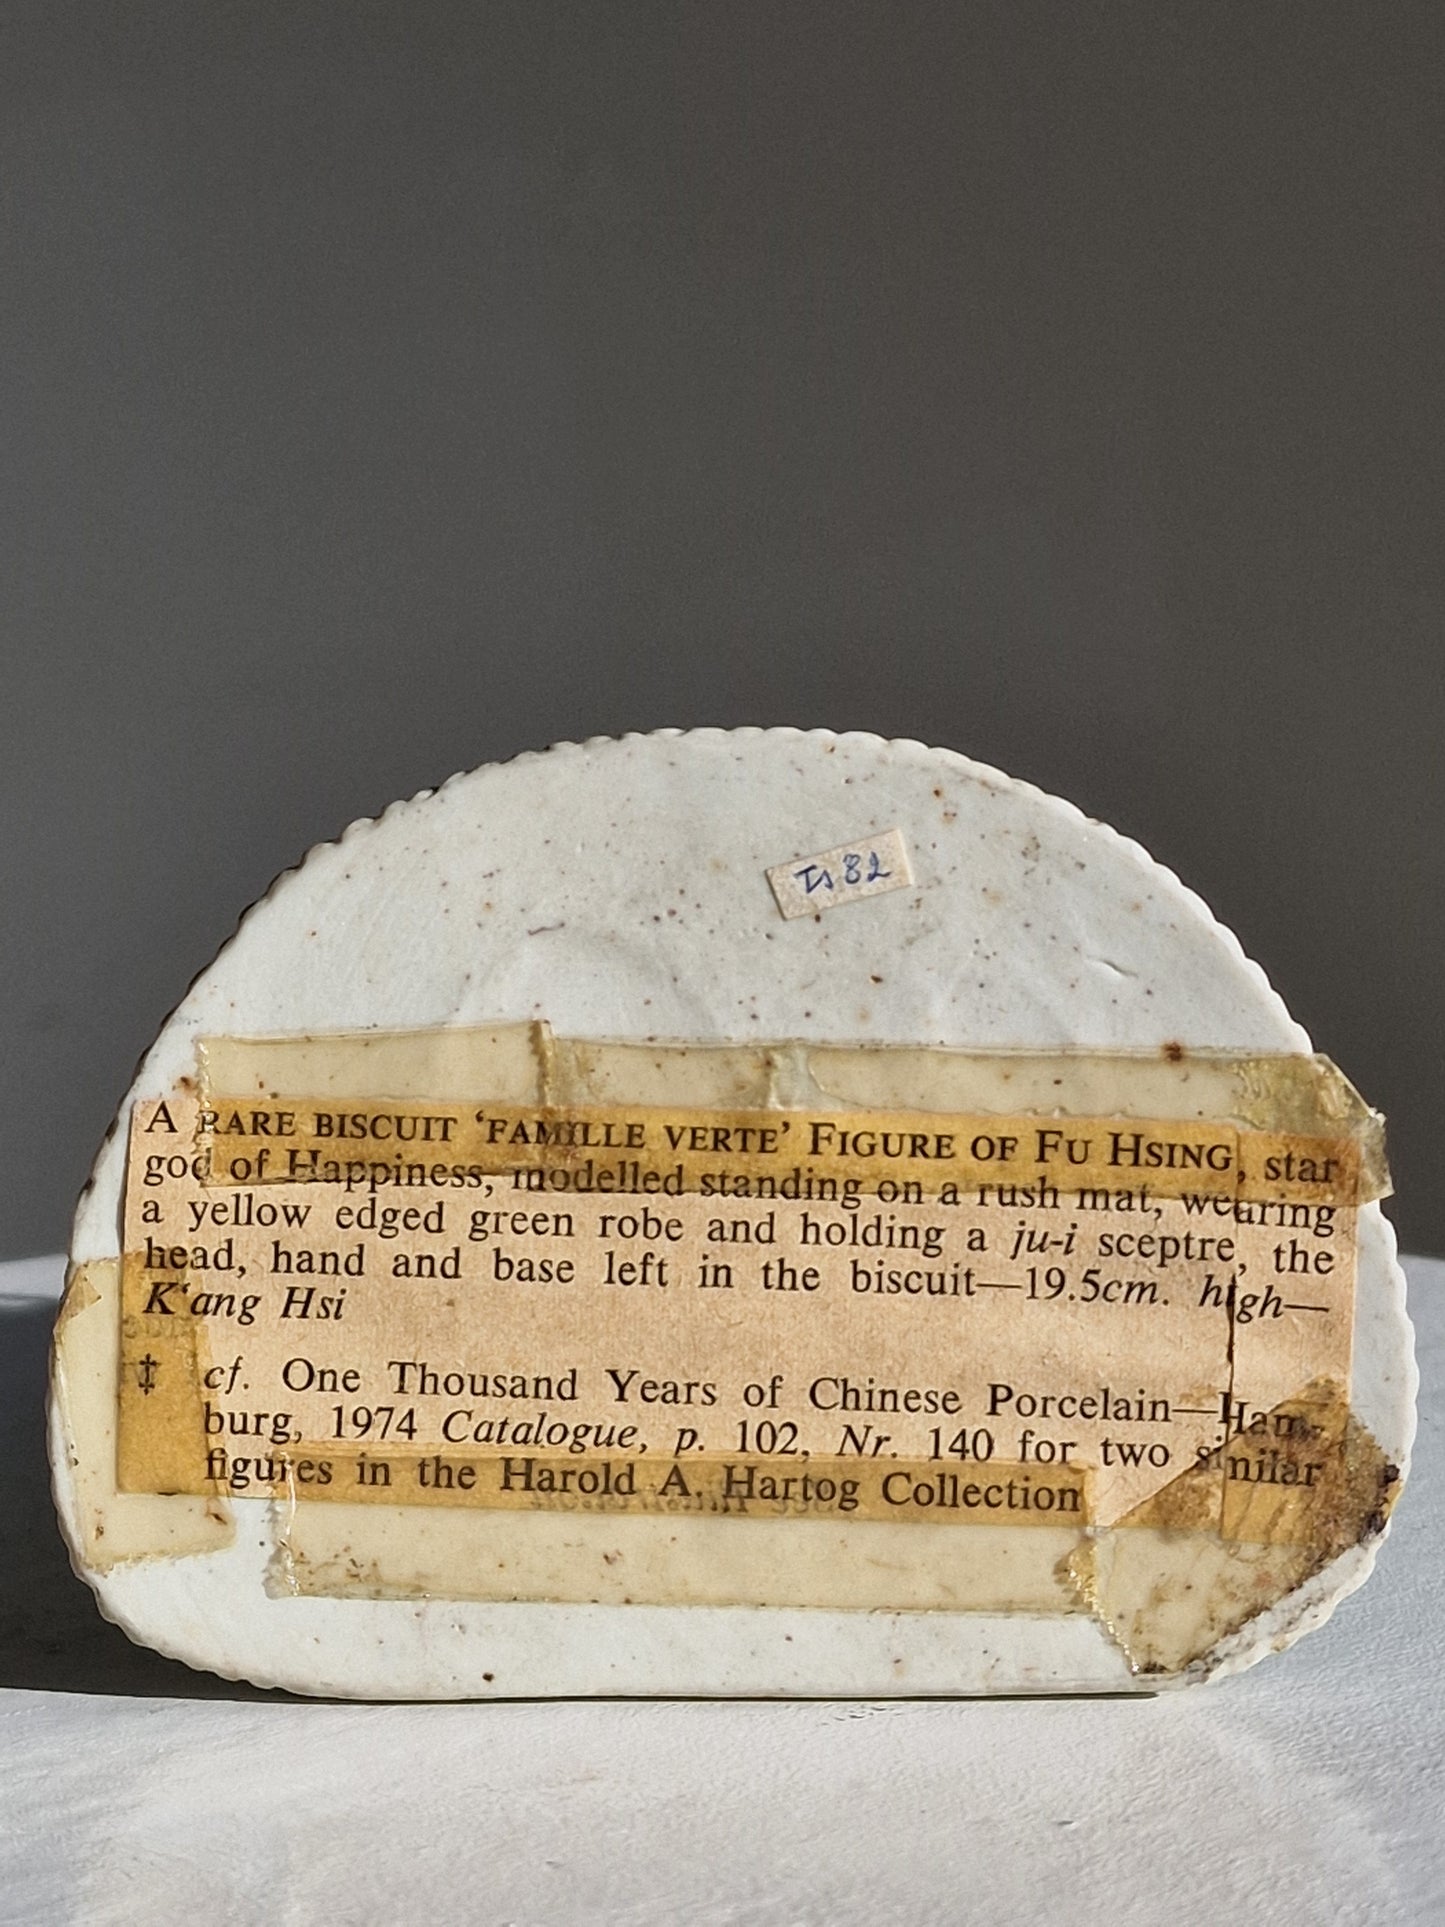 82
A RARE BISCUIT ‘FAMILLE VERTE’ FIGURE OF FU HSING, star
god of Happiness, modelled standing on a rush mat, wearing
a yellow edged green robe and holding a ju-i sceptre, the
head, hand and base left in the biscuit—19.5cm. high—
K‘ang Hsi
‡ cf. One Thousand Years of Chinese Porcelain—Ham-
burg, 1974 Catalogue, p. 102, Nr. 140 for two similar
figures in the Harold A. Hartog Collection